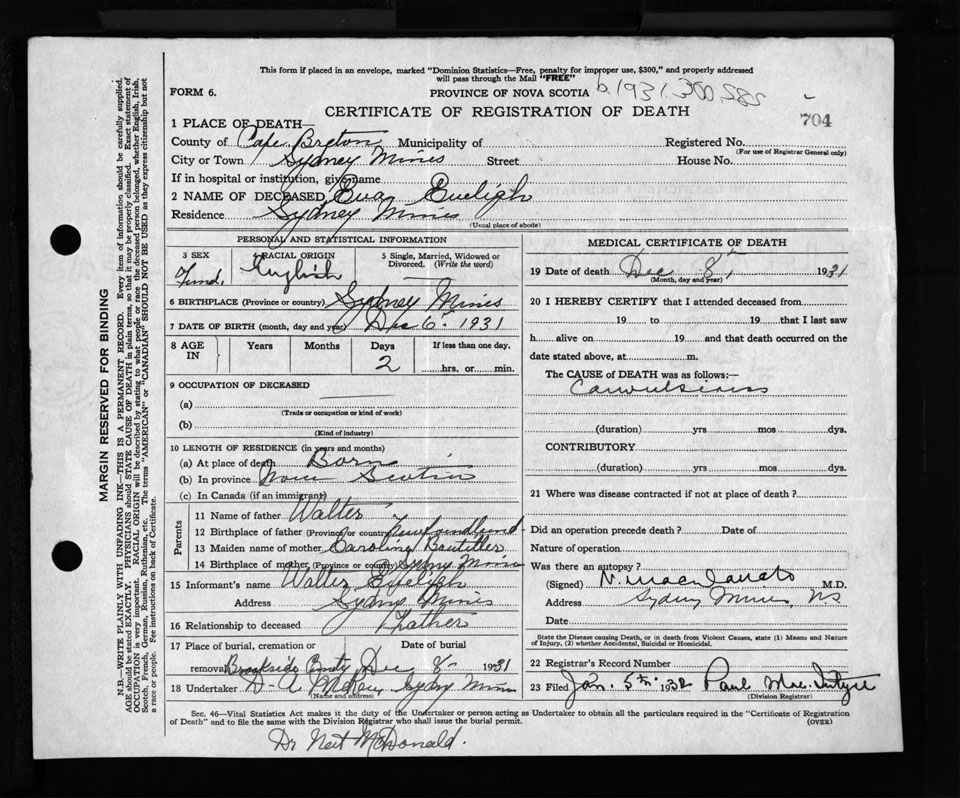 This form if placed in an envelope, marked "Dominion Statistics—Free, penalty for improper use, $300," and properly addressed
will pass through the Mail "FREE"
FORM 6. PROVINCE OF NOVA SCOTIA b.1931.300,282
CERTIFICATE OF REGISTRATION OF DEATH
704
1 PLACE OF DEATH—
County of Cape Breton Municipality of Registered No.
(For use of Registrar General only)
City or Town Sydney Mines Street House No.
If in hospital or institution, give name
2 NAME OF DECEASED Eva Eveligh
Residence Sydney Mines
(Usual place of abode)
PERSONAL AND STATISTICAL INFORMATION
3 SEX 4 RACIAL ORIGIN 5 Single, Married, Widowed or Divorced. (Write the word)
English
6 BIRTHPLACE (Province or country) Sydney Mines
7 DATE OF BIRTH (month, day and year) Dec 6th 1931
8 AGE IN Years Months Days If less than one day,
2 hrs. or min.
9 OCCUPATION OF DECEASED
(a)
(Trade or occupation or kind of work)
(b)
(Kind of industry)
10 LENGTH OF RESIDENCE (in years and months)
(a) At place of death Born
(b) In province Nova Scotia
(c) In Canada (if an immigrant)
Parents
11 Name of father Walter
12 Birthplace of father (Province or country) Newfoundland
13 Maiden name of mother Caroline Boutilier
14 Birthplace of mother (Province or country) Sydney Mines
15 Informant's name Walter Eveligh
Address Sydney Mines
16 Relationship to deceased Father
17 Place of burial, cremation or removal Date of burial
Brookside Dec 8- 1931
18 Undertaker D. A. McRae Sydney Mines
(Name and address)
MEDICAL CERTIFICATE OF DEATH
19 Date of death Dec 8th 1931
(Month, day and year)
20 I HEREBY CERTIFY that I attended deceased from
19 to 19 that I last saw
h alive on 19 and that death occurred on the
date stated above, at m.
The CAUSE of DEATH was as follows:—
Convulsions
(duration) yrs mos dys.
CONTRIBUTORY
(duration) yrs mos dys.
21 Where was disease contracted if not at place of death?
Did an operation precede death? Date of
Nature of operation
Was there an autopsy?
(Signed) M.D.
Address Sydney Mines, NS
Date
State the Disease causing Death, or in death from Violent Causes, state (1) Means and Nature
of Injury, (2) whether Accidental, Suicidal or Homicidal.
22 Registrar's Record Number
23 Filed Jan. 5th 1932 Paul McIntyre
(Division Registrar)
Sec. 46—Vital Statistics Act makes it the duty of the Undertaker or person acting as Undertaker to obtain all the particulars required in the "Certificate of Registration
of Death" and to file the same with the Division Registrar who shall issue the burial permit. (OVER)
Dr McDonald.
MARGIN RESERVED FOR BINDING
N.B.—WRITE PLAINLY WITH UNFADING INK—THIS IS A PERMANENT RECORD. Every item of information should be carefully supplied.
AGE should be stated EXACTLY. PHYSICIANS should STATE CAUSE OF DEATH in plain terms, so that it may be properly classified. Exact statement of
OCCUPATION is very important. RACIAL ORIGIN will be described by stating to what people or race the deceased person belonged, whether English, Irish,
Scotch, French, German, Russian, Ruthenian, etc. The terms "AMERICAN" or "CANADIAN" SHOULD NOT BE USED as they express citizenship but not
a race or people. See instructions on back of Certificate.